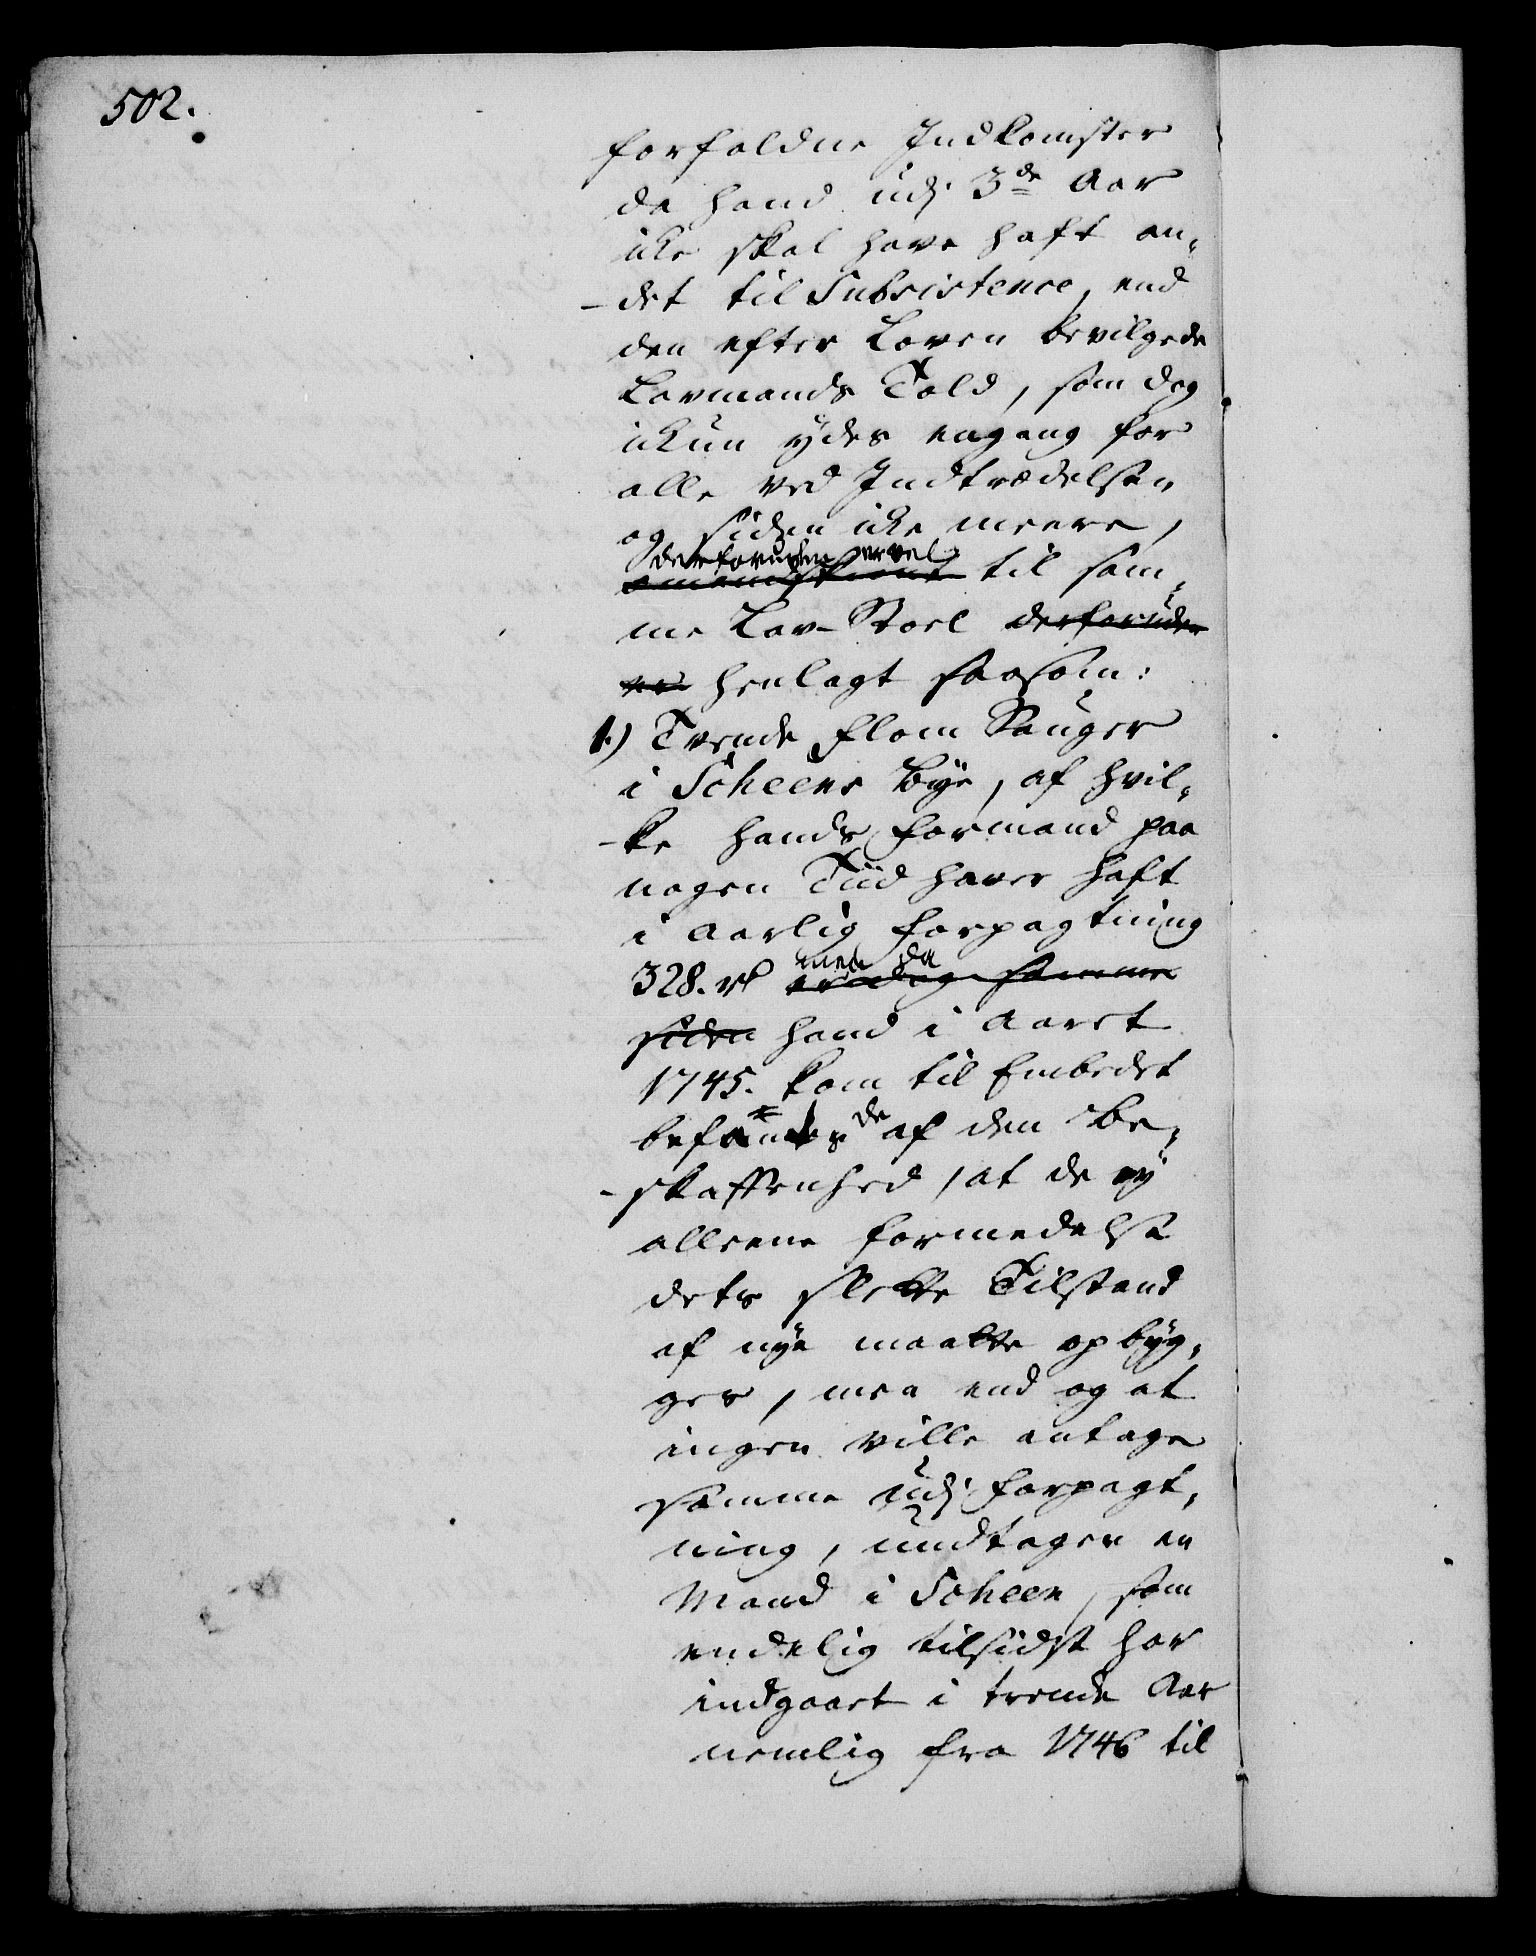 502.
forfaldne Indkomster
da hand udj 3de Aar
icke skal have haft an-
-det til Subsistence, end
den efter Loven bevilgede
Lavmands Told, som dog
ickun ydes engang for
alle ved Indtrædelsen
og siden icke meere,
derforuden er vel
til sam-
me Lav-Stoel derforuden
er henlagt saasom:
1.) Tvende Flom Sauger
i Scheens Bye, af hvil-
-ke hands Formand paa
nogen Tiid haver haft
i Aarlig Forpagtning
men da
328. rd er dog samme
siden hand i Aaret
1745. kom til Embedet
befantes de af den Be-
-skaffenhed, at de ey
alleene formedelst
dets slette Tilstand
af nye maatte opbyg-
ges, men end og at
ingen ville antage
samme udj Forpagt-
ning, undtagen en
Mand i Scheen, som
endelig tilsidst har
indgaaet i trende Aar
nemlig fra 1746 til